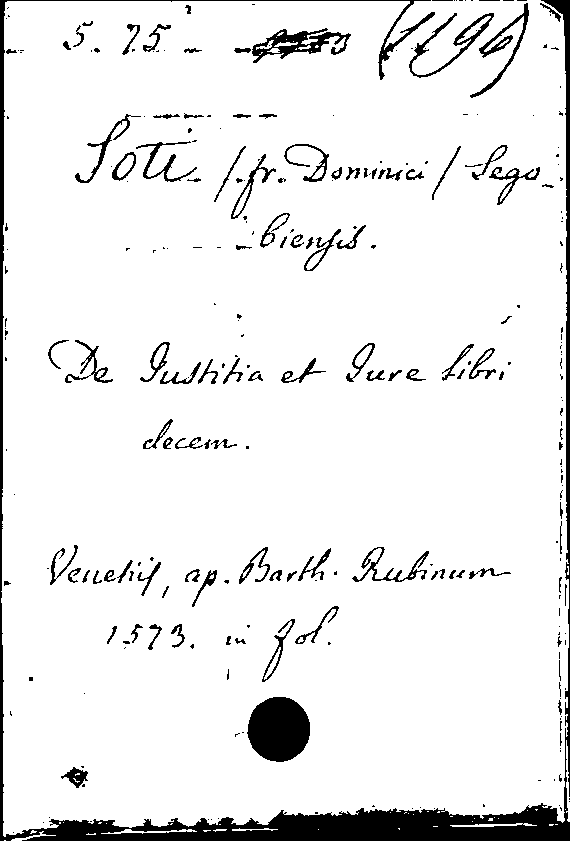 5. 75 (1196)
Soti /fr. Dominici/ Sego-
biensis.
De Iustitia et Iure libri
decem.
Venetiis, ap. Barth. Rubinum
1573. in fol.